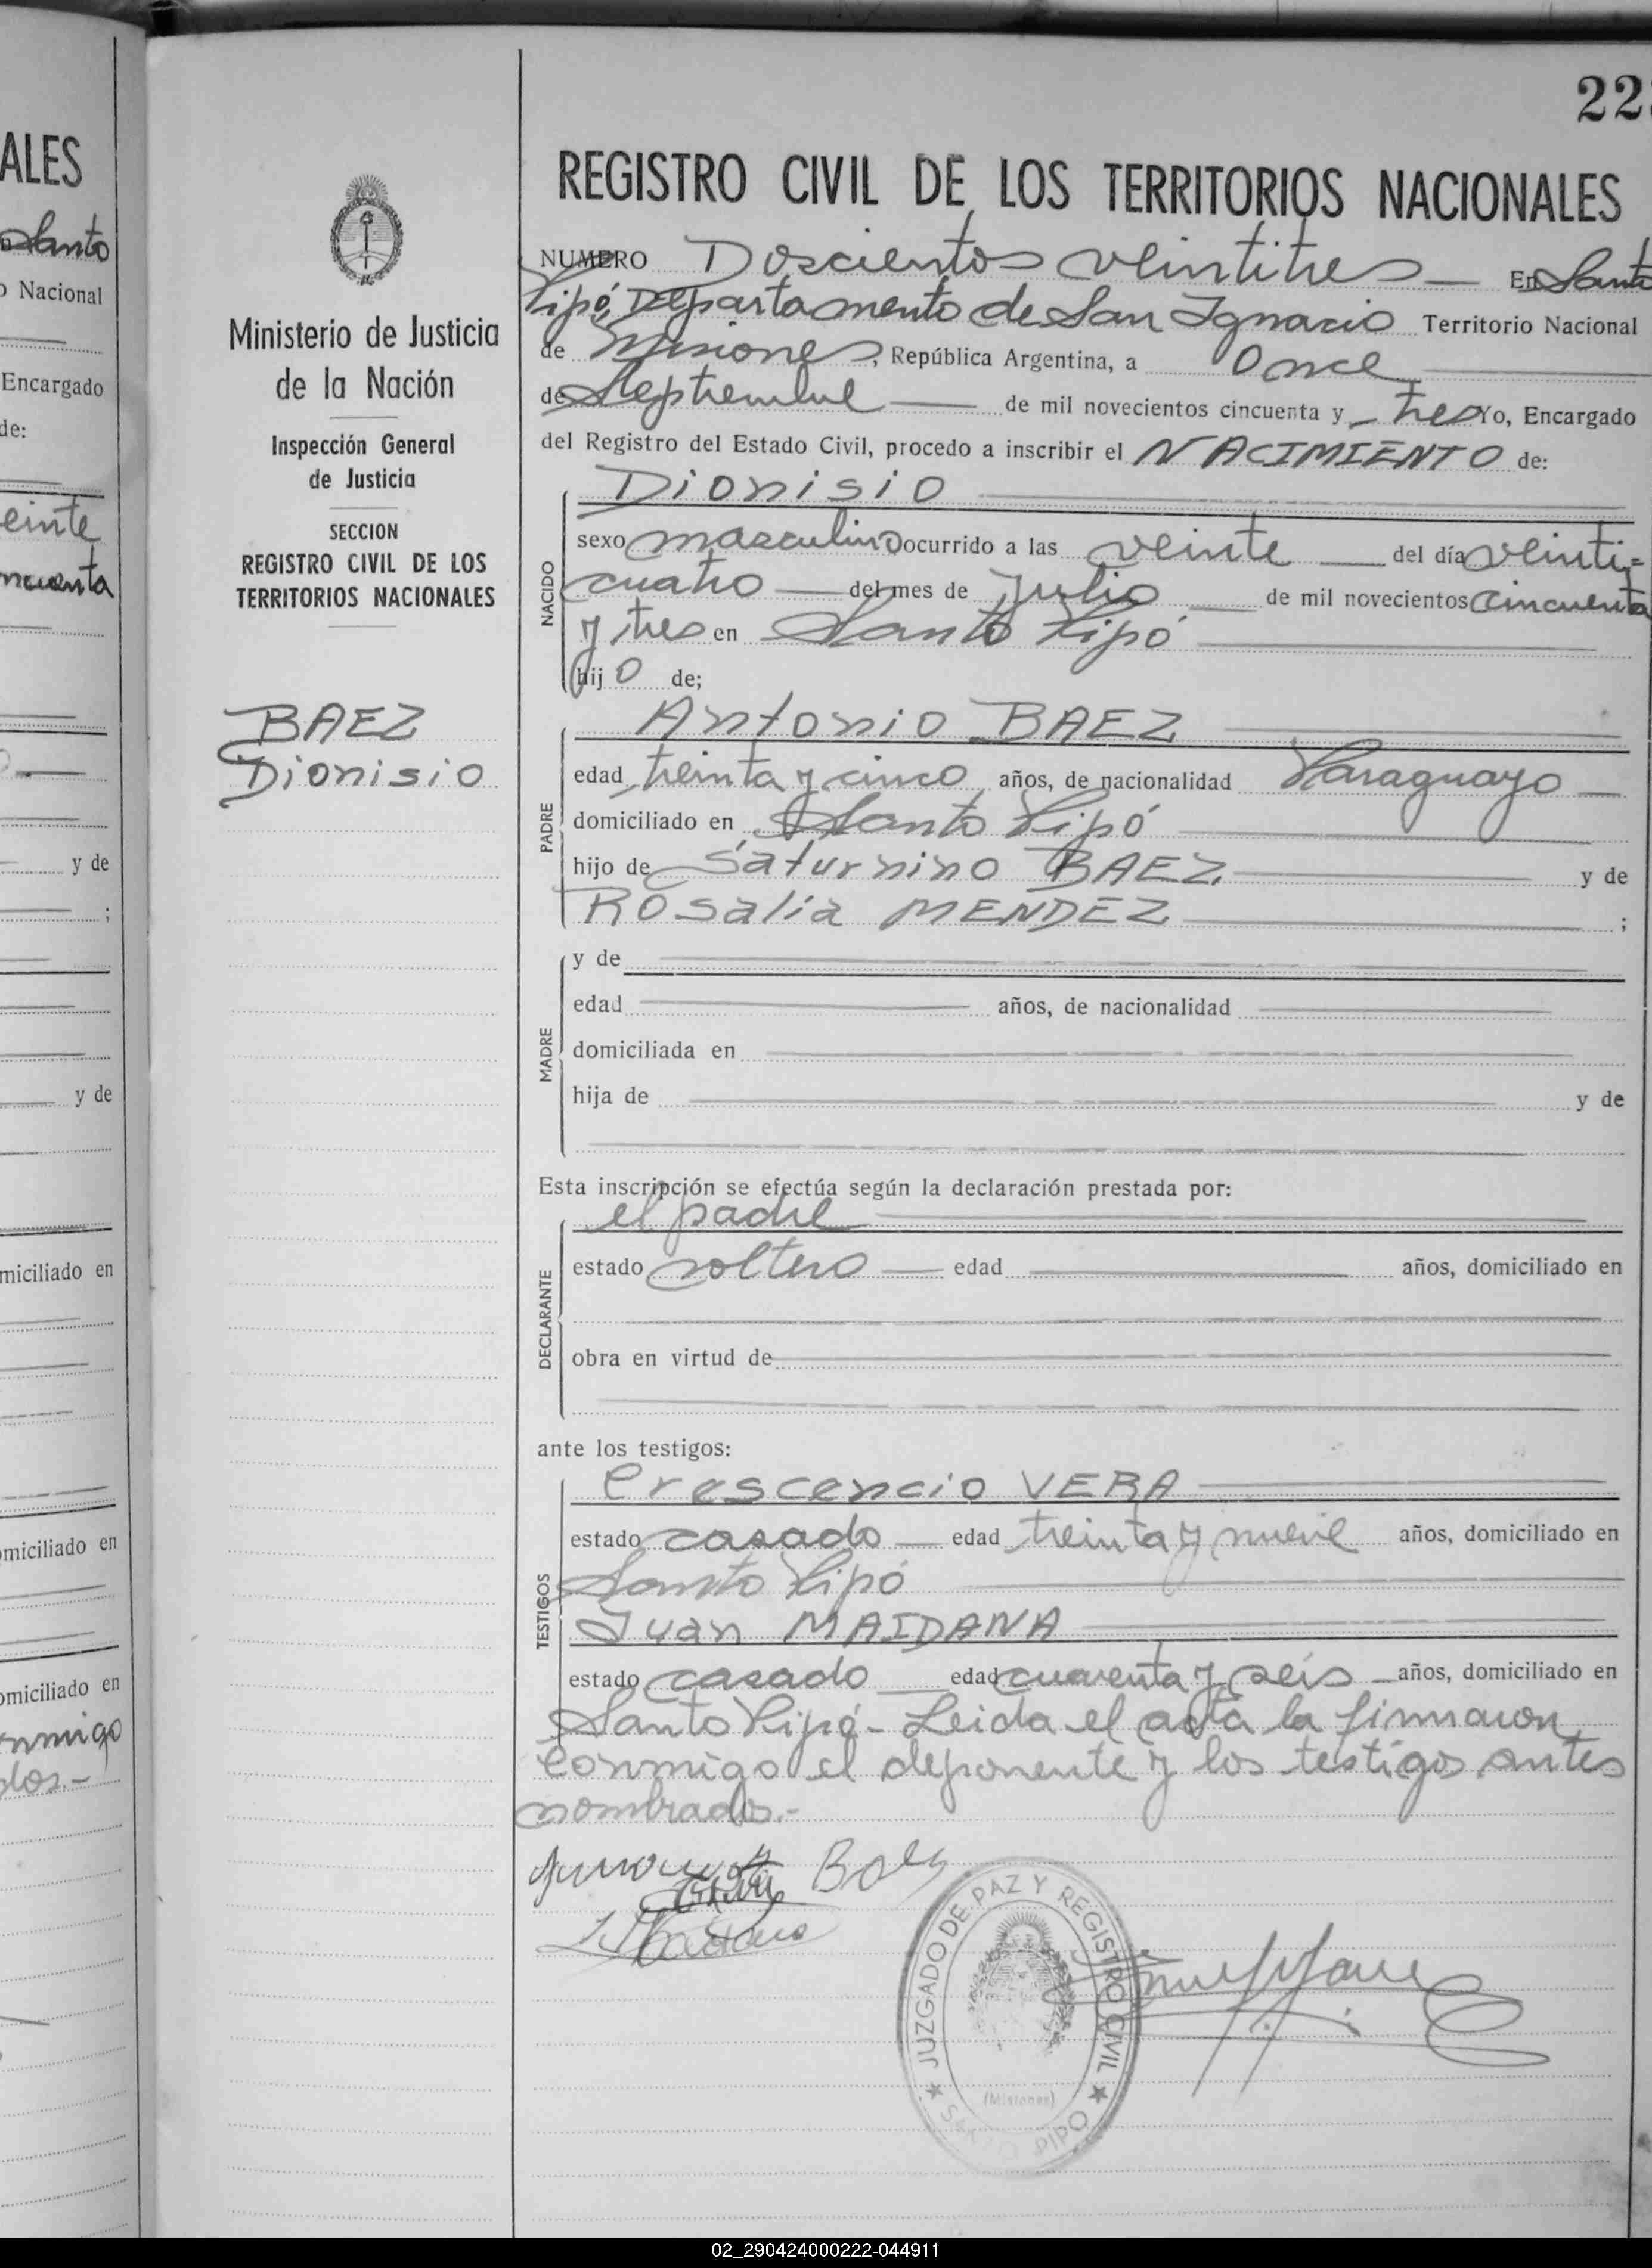 ALES
Santo
o Nacional
Encargado
de:
einte
ncuenta
y de
;
y de
miciliado en
omiciliado en
omiciliado en
onmigo
dos.-
Ministerio de Justicia
de la Nación
Inspección General
de Justicia
SECCION
REGISTRO CIVIL DE LOS
TERRITORIOS NACIONALES
BAEZ
Dionisio
22
REGISTRO CIVIL DE LOS TERRITORIOS NACIONALES
NUMERO Doscientos veintitres — En Santo
Pipó, Departamento de San Ignacio Territorio Nacional
de Misiones, República Argentina, a Once
de Septiembre — de mil novecientos cincuenta y tres Yo, Encargado
del Registro del Estado Civil, procedo a inscribir el NACIMIENTO de:
NACIDO
Dionisio
sexo masculino ocurrido a las veinte — del día veinti=
cuatro — del mes de Julio — de mil novecientos cincuenta
y tres en Santo Pipó
hijo de;
PADRE
Antonio BAEZ
edad treinta y cinco años, de nacionalidad Paraguayo —
domiciliado en Santo Pipó
hijo de Saturnino BAEZ y de
Rosalia MENDEZ ;
MADRE
y de
edad años, de nacionalidad
domiciliada en
hija de y de
Esta inscripción se efectúa según la declaración prestada por:
DECLARANTE
el padre
estado soltero — edad años, domiciliado en
obra en virtud de
ante los testigos:
TESTIGOS
Crescencio VERA
estado casado — edad treinta y nueve años, domiciliado en
Santo Pipó
Juan MAIDANA
estado casado — edad cuarenta y seis — años, domiciliado en
Santo Pipó- Leida el acta la firmaron
conmigo el deponente y los testigos antes
nombrados.-
JUZGADO DE PAZ Y REGISTRO CIVIL
(Misiones)
SANTO PIPO
02_290424000222-044911